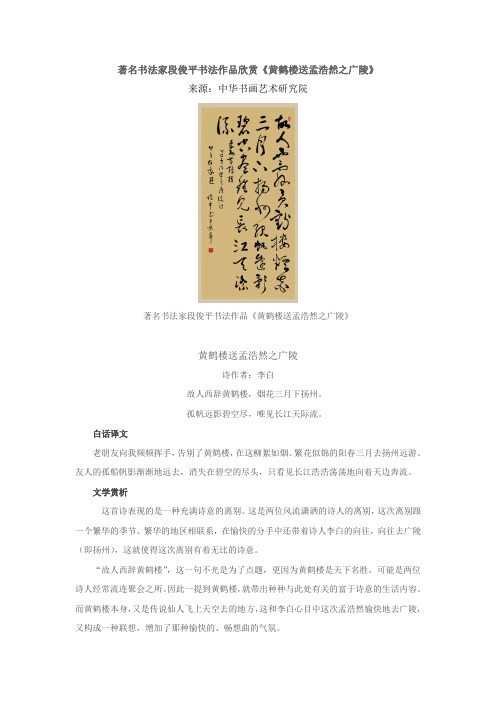 著名书法家段俊平书法作品欣赏《黄鹤楼送孟浩然之广陵》
来源：中华书画艺术研究院
故人西辞黄鹤楼烟花
三月下扬州孤帆远影
碧空尽唯见长江天际
流
著名书法家段俊平书法作品《黄鹤楼送孟浩然之广陵》
黄鹤楼送孟浩然之广陵
诗作者：李白
故人西辞黄鹤楼，烟花三月下扬州。
孤帆远影碧空尽，唯见长江天际流。
白话译文
老朋友向我频频挥手，告别了黄鹤楼，在这柳絮如烟、繁花似锦的阳春三月去扬州远游。
友人的孤船帆影渐渐地远去，消失在碧空的尽头，只看见长江浩浩荡荡地向着天边奔流。
文学赏析
这首诗表现的是一种充满诗意的离别。这是两位风流潇洒的诗人的离别，这次离别跟
一个繁华的季节、繁华的地区相联系，在愉快的分手中还带着诗人李白的向往，向往去广陵
（即扬州），这就使得这次离别有着无比的诗意。
“故人西辞黄鹤楼”，这一句不光是为了点题，更因为黄鹤楼是天下名胜，可能是两位
诗人经常流连聚会之所。因此一提到黄鹤楼，就带出种种与此处有关的富于诗意的生活内容。
而黄鹤楼本身，又是传说仙人飞上天空去的地方，这和李白心目中这次孟浩然愉快地去广陵，
又构成一种联想，增加了那种愉快的、畅想曲的气氛。